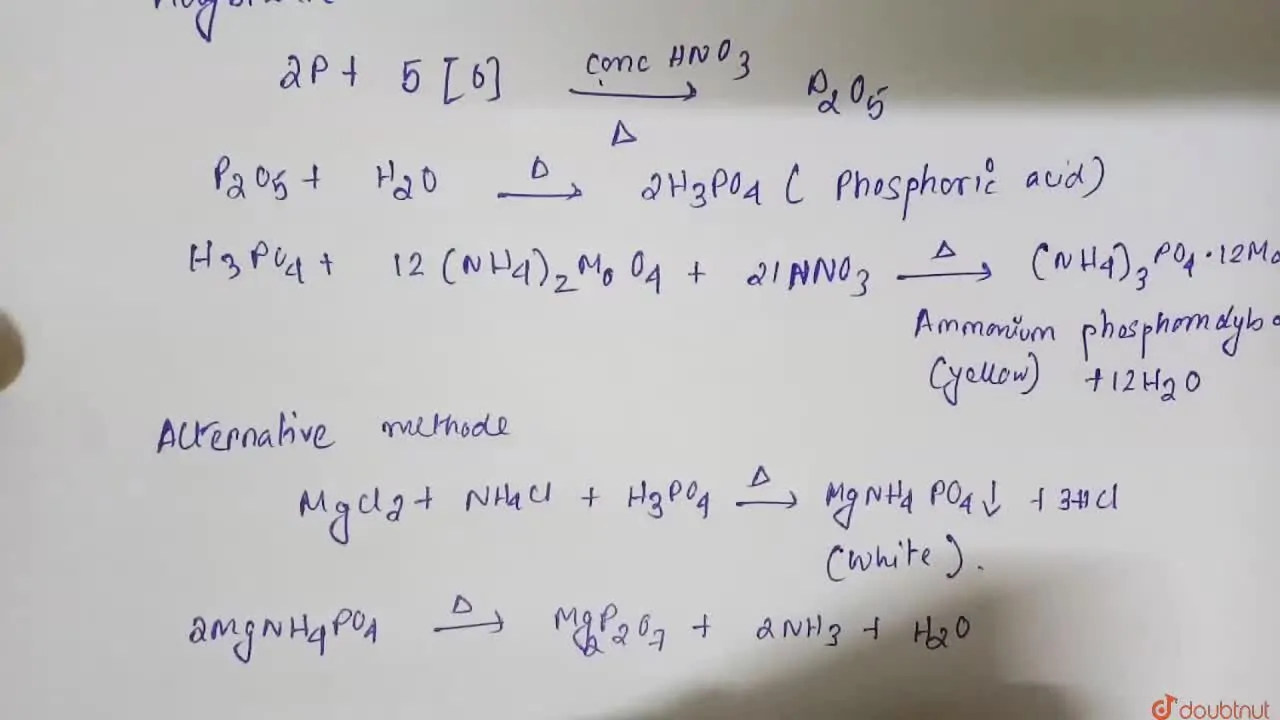 2P + 5 [O] conc HNO3 → P2O5
Δ
P2O5 + H2O Δ → 2H3PO4 ( Phosphoric acid)
H3PO4 + 12 (NH4)2MoO4 + 21HNO3 Δ → (NH4)3PO4·12Mo
Ammonium phosphomolybda
(yellow) +12H2O
Alternative methode
MgCl2 + NH4Cl + H3PO4 Δ → MgNH4PO4↓ + 3HCl
(White).
2MgNH4PO4 Δ → Mg2P2O7 + 2NH3 + H2O
doubtnut